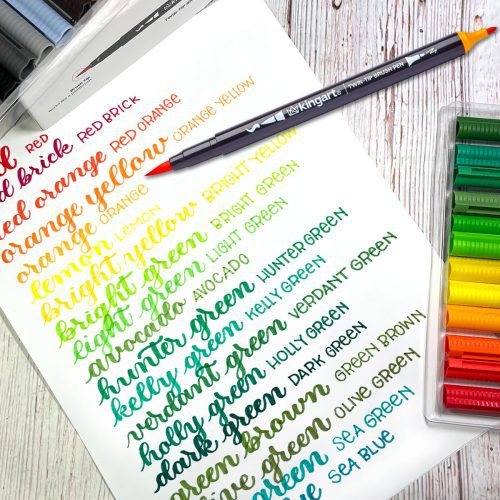 Brush Tip
kingart TWIN-TIP BRUSH PEN
ed RED
d brick RED BRICK
red orange RED ORANGE
orange yellow ORANGE YELLOW
orange ORANGE
lemon LEMON
bright yellow BRIGHT YELLOW
bright green BRIGHT GREEN
light green LIGHT GREEN
avocado AVOCADO
hunter green HUNTER GREEN
kelly green KELLY GREEN
verdant green VERDANT GREEN
holly green HOLLY GREEN
dark green DARK GREEN
green brown GREEN BROWN
ive green OLIVE GREEN
green SEA GREEN
ue SEA BLUE